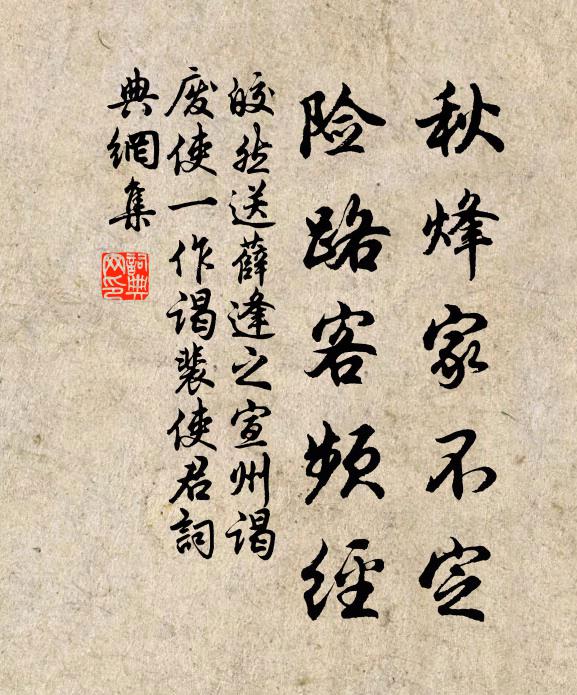 秋烽家不定
险路客频經
皎然送薛逢之宣州謁
废使一作谒裴使君詞
典網集
詞典網印